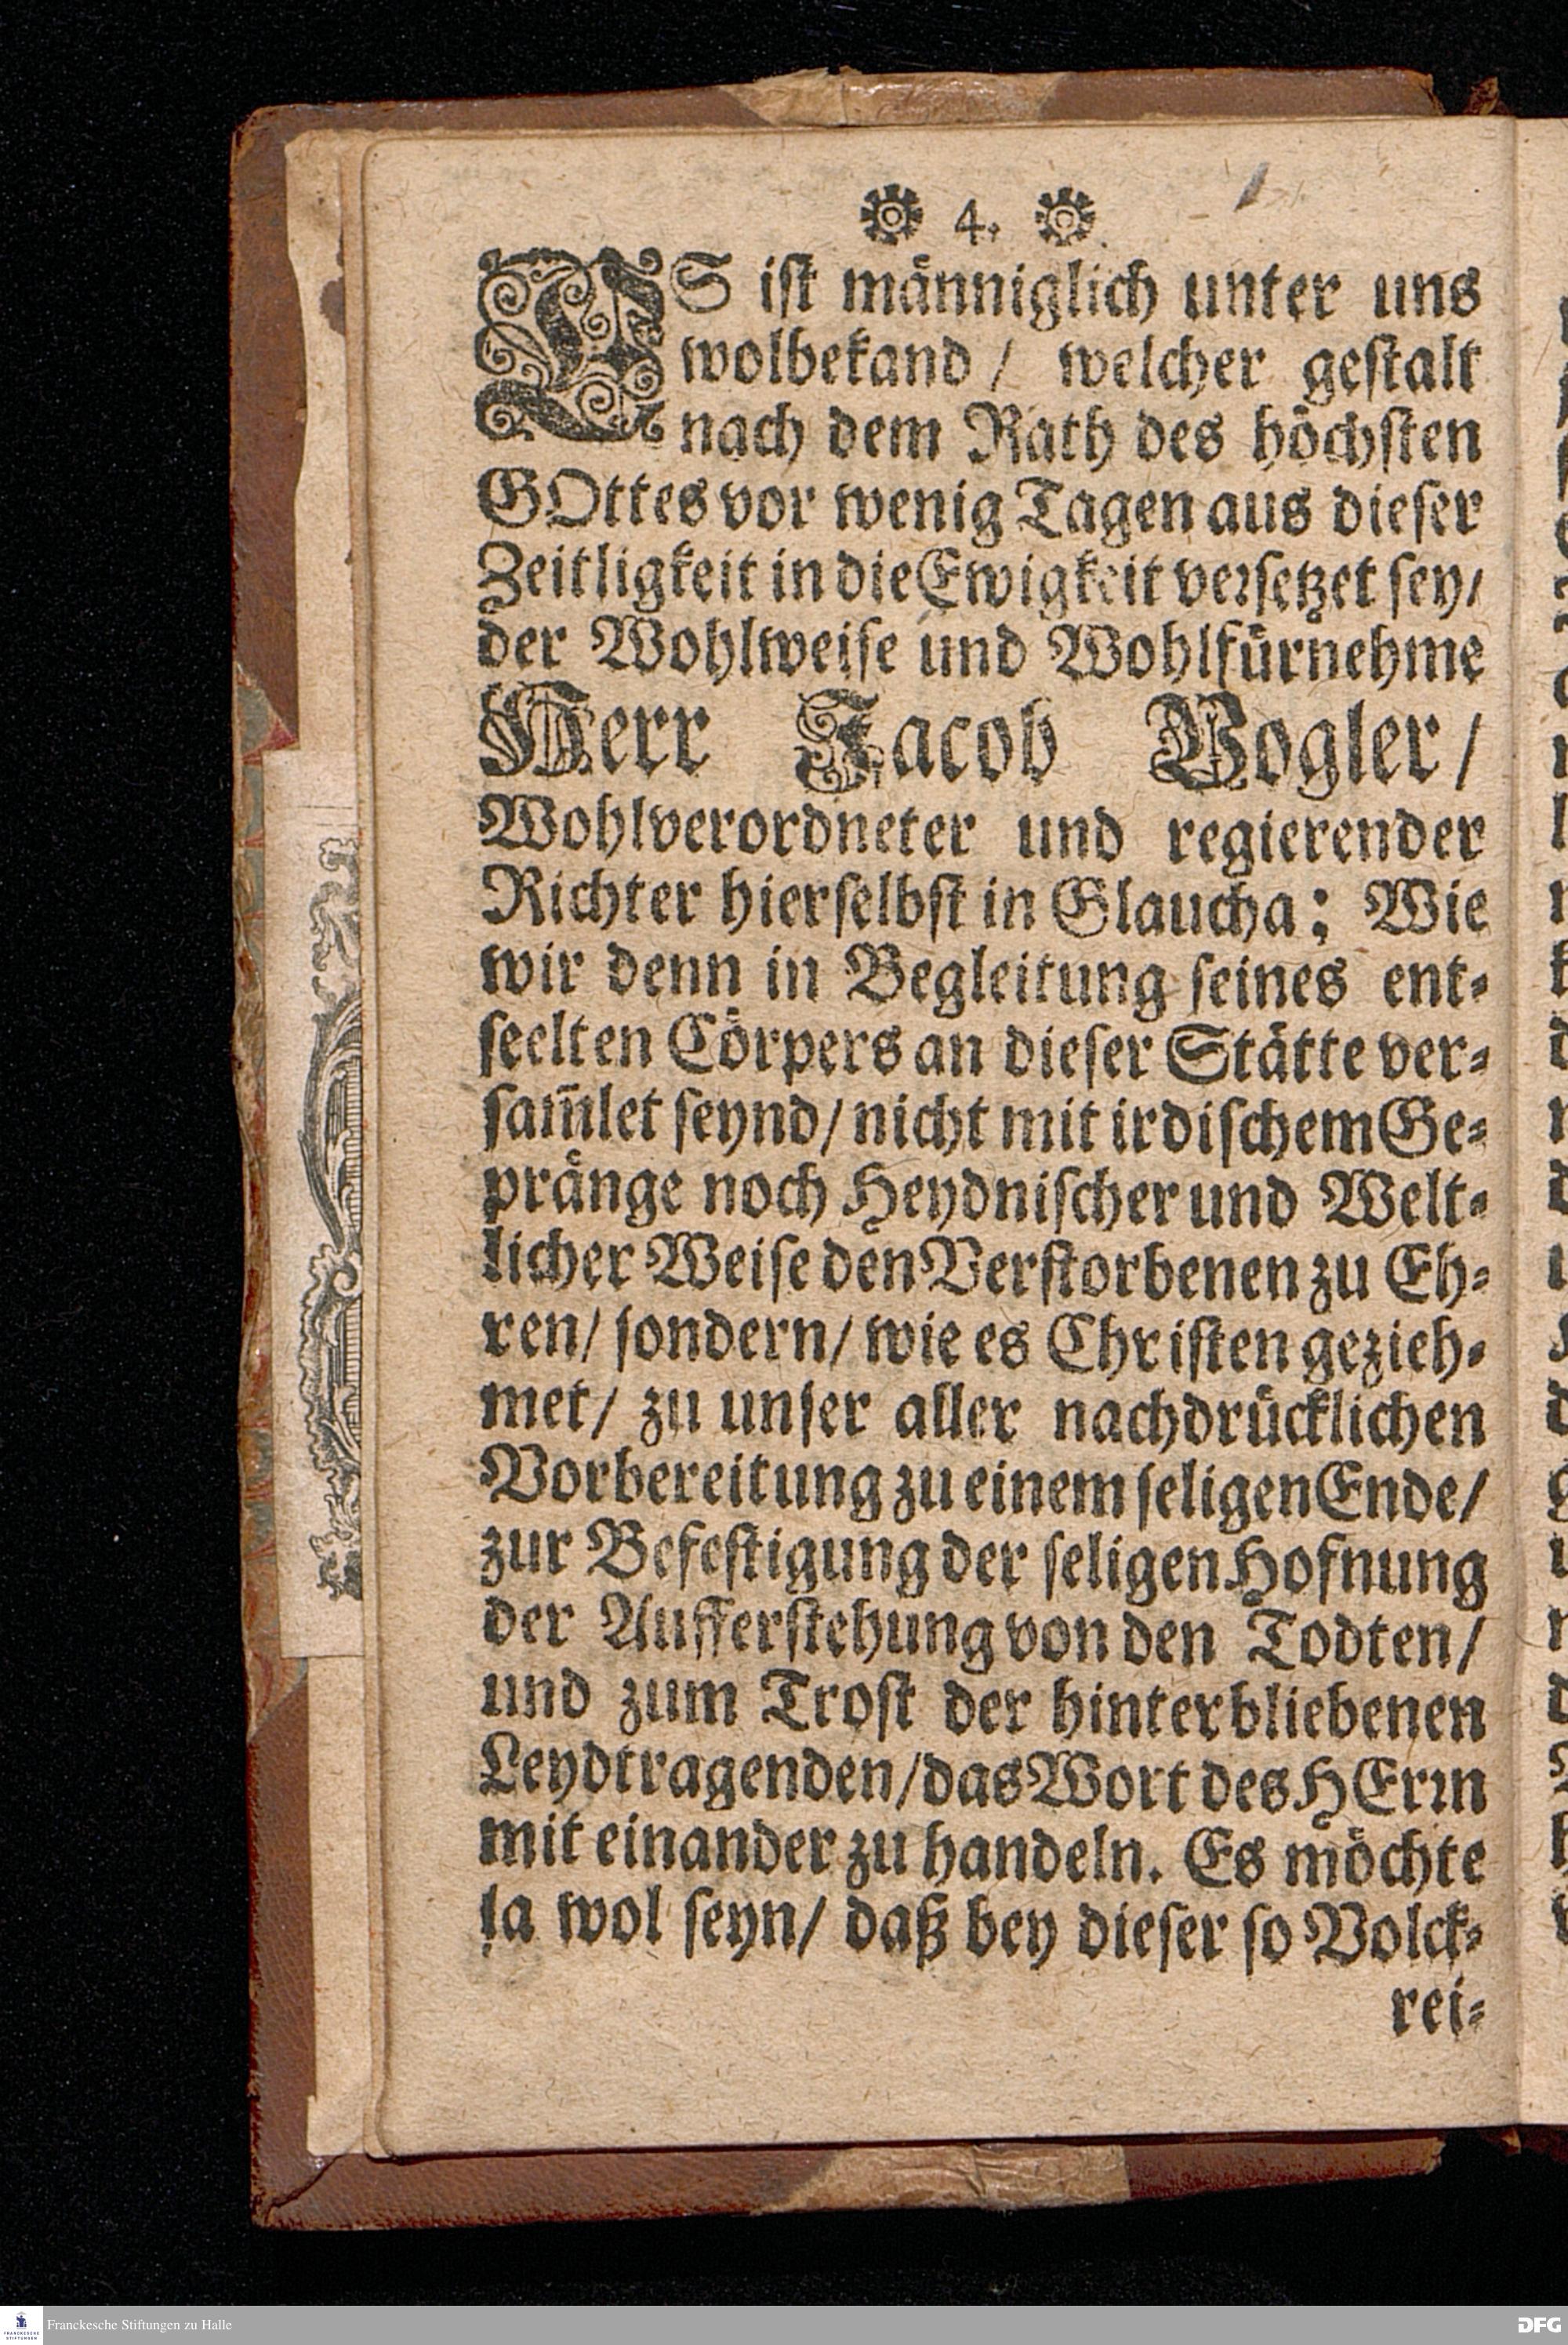 4.
ES iſt männiglich unter uns
wolbekand / welcher geſtalt
nach dem Rath des höchſten
GOttes vor wenig Tagen aus dieſer
Zeitligkeit in die Ewigkeit verſetzet ſey/
der Wohlweiſe und Wohlfürnehme
Herr Jacob Vogler /
Wohlverordneter und regierender
Richter hierſelbſt in Glaucha; Wie
wir denn in Begleitung ſeines ent⸗
ſeelten Cörpers an dieſer Stätte ver⸗
ſam̃let ſeynd/ nicht mit irdiſchem Ge⸗
pränge noch Heydniſcher und Welt⸗
licher Weiſe den Verſtorbenen zu Eh⸗
ren/ ſondern/ wie es Chriſten gezieh⸗
met/ zu unſer aller nachdrücklichen
Vorbereitung zu einem ſeligen Ende/
zur Befeſtigung der ſeligen Hofnung
der Aufferſtehung von den Todten/
und zum Troſt der hinterbliebenen
Leydtragenden/ das Wort des HErꝛn
mit einander zu handeln. Es möchte
ja wol ſeyn/ daß bey dieſer ſo Volck⸗
rei⸗
Franckesche Stiftungen zu Halle
FRANCKESCHE
STIFTUNGEN
DFG